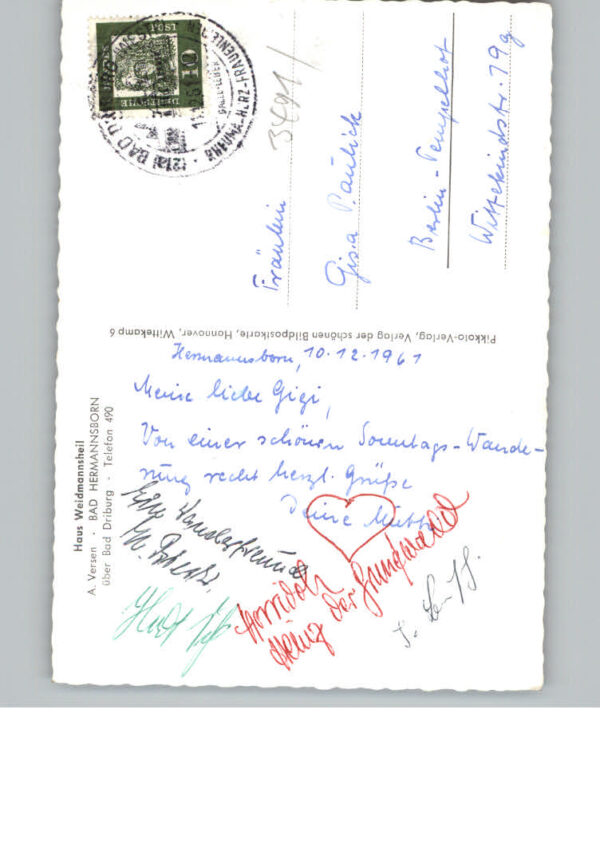 Hermannsborn, 10.12.1961
Meine liebe Gigi,
Von einer schönen Sonntags-Wande-
rung recht herzl. Grüße
Deine Mutti
Horridoh
Heinz der
Fräulein
Gisa Paulick
Berlin-Tempelhof
Wittekindstr. 19g
3491/
Haus Weidmannsheil
A. Versen · BAD HERMANNSBORN
über Bad Driburg · Telefon 490
Pikkolo-Verlag, Verlag der schönen Bildpostkarte, Hannover, Wittekamp 6
DEUTSCHE
POST
10
(21a) BAD DRIBURG